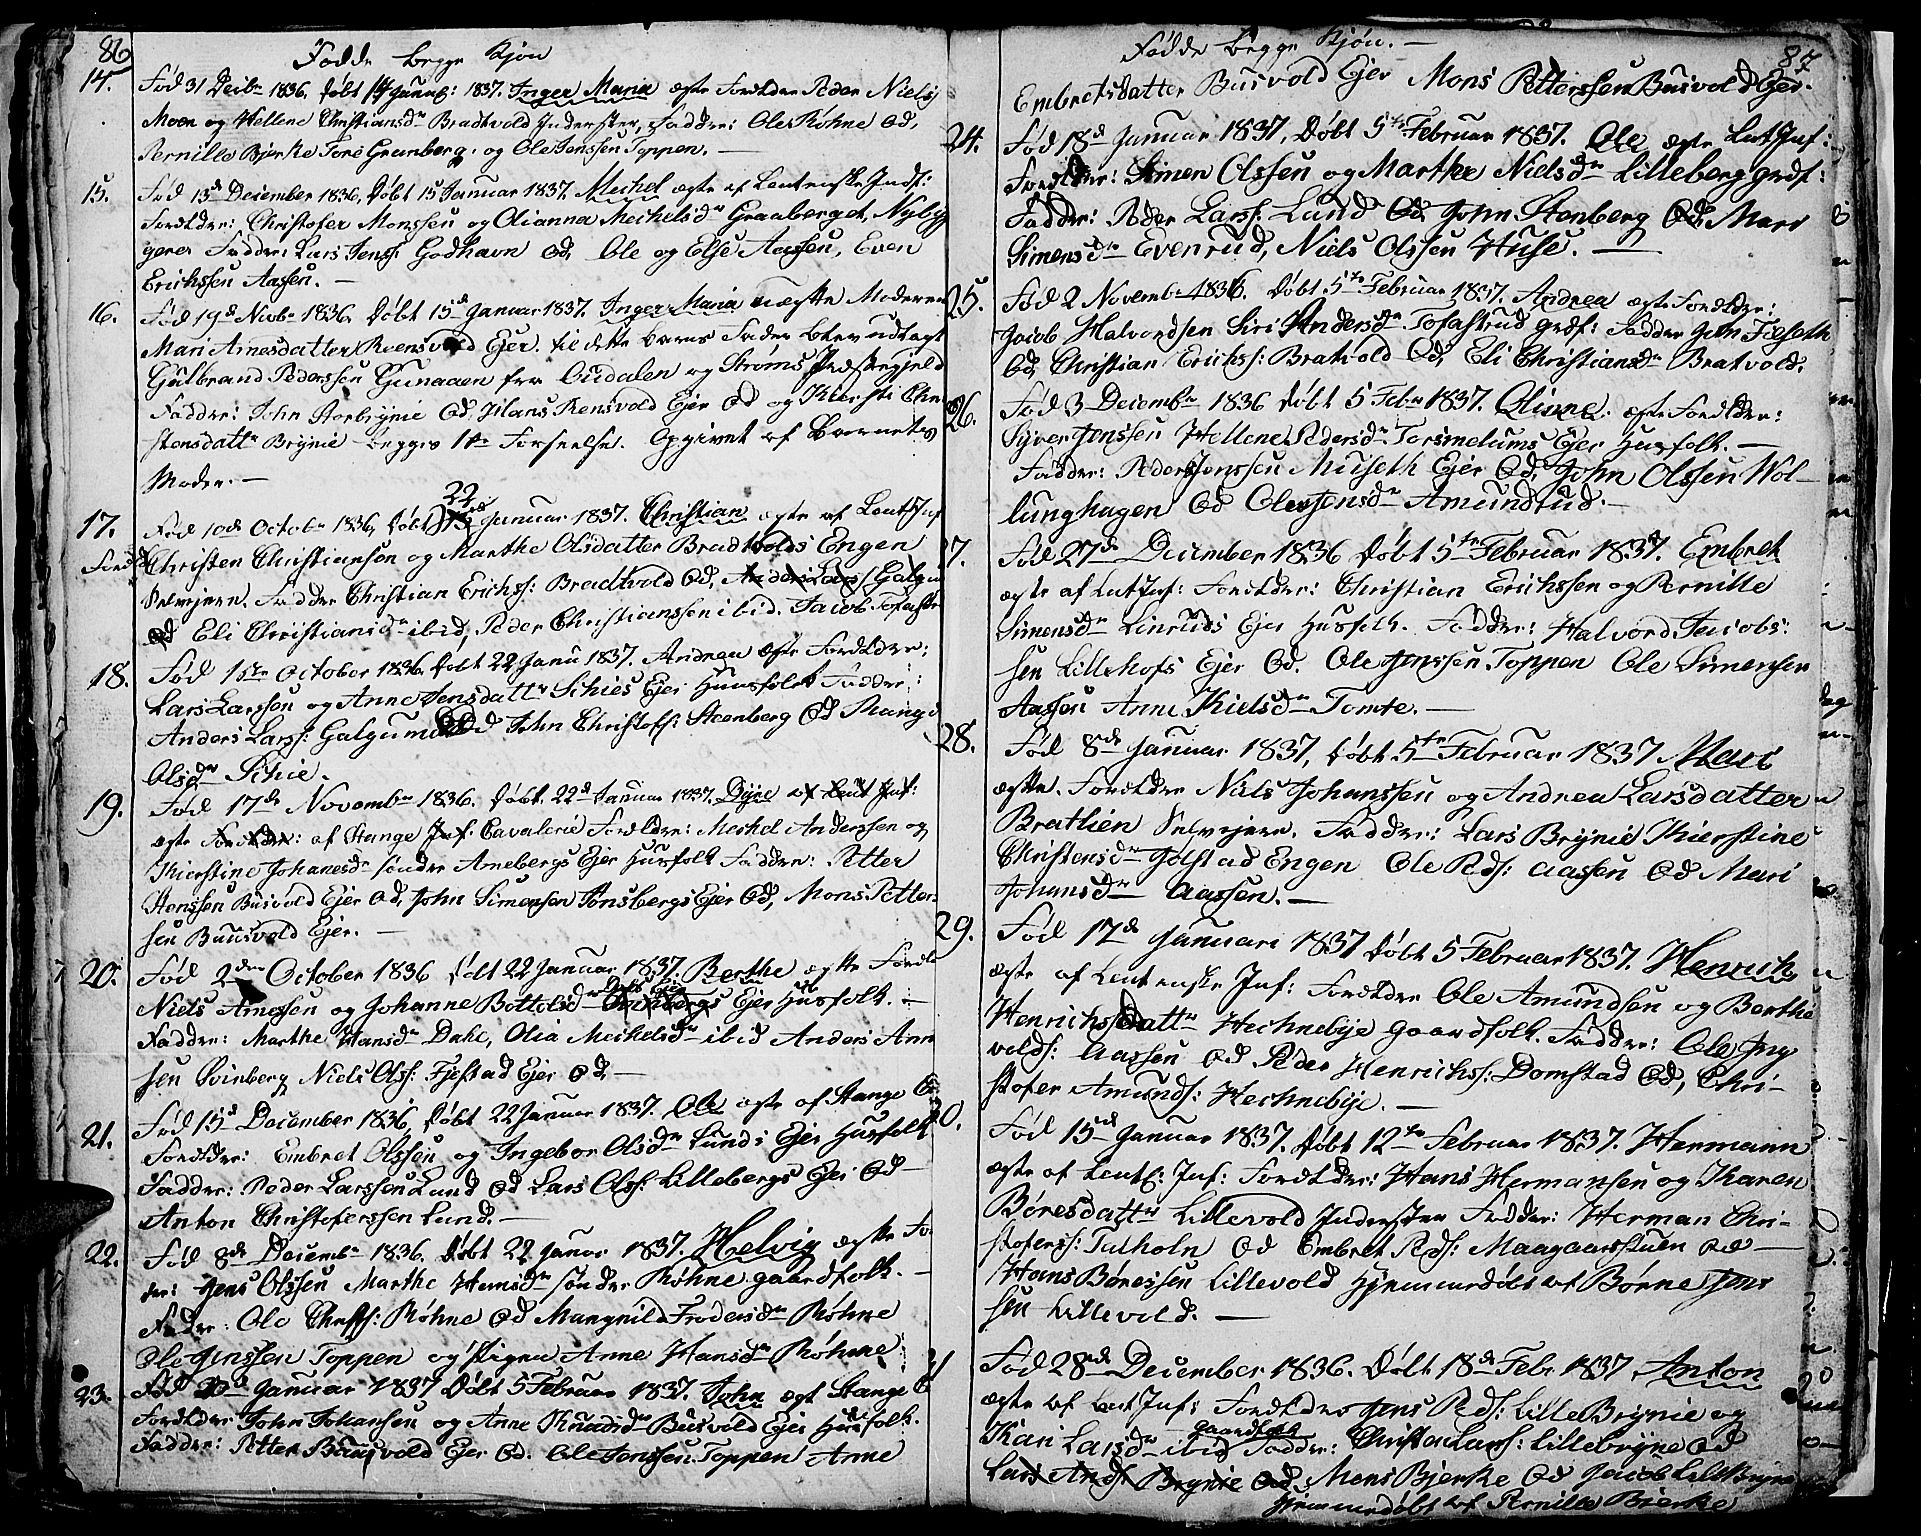 86
Fødde begge Kjøn
14. Fød 31 Decbr 1836. døbt 14 Januar: 1837. Inger Maria ægte Foreldre Peder Niels
Moen og Hellene Christiansdr Bradtvold Inderster, Faddre: Ole Røhne Od,
Pernille Bjerke Tore Grunberg, og Ole Jensen Toppen. —
15. Fød 13de December 1836, Døbt 15 Januar 1837. Mechel ægte af Leutenske Inf:
Foreldre: Christofer Monssen og Olianna Mechelsdr Graaberget, Nybyg
gere Faddre: Lars Jens: Godhavn Od, Ole og Else Aassen, Even
Erichssen Aassen. —
16. Fød 19de Novbr 1836. Døbt 15de Januar 1837. Inger Maria uægte Moderen
Mari Arnesdatter Rvensvold Ejer. til dette barns Fader blev udlagt
Gulbrand Pedersen Gunaaen fra Oudalen og Strøms Prestegjeld
Faddre: John Storbrynie Od. Hans Rensvold Ejer Od og Kiersti Chri
stensdattr Brynie begges 1te Forseelse. Opgivet af Barnets
Moder. —
17. Fød 10de Octobr 1836, Døbt 22de Januar 1837. Christian ægte af Leut Inf
Foreld Christen Christiansen og Marthe Olsdatter Bradtvolds Engen
Selvejere. Faddre Christian Erichs: Bradtvold Od, Anders Lars: Galgu
Od Eli Christiansdr ibid, Peder Christianssen ibid. Jacob Tofastr
18. Fød 1ste October 1836, Døbt 22 Janu 1837. Andrea ægte Foreldre:
Lars Larssen og Anne Jensdattr Schies Ejer Huusfolk Faddre:
Anders Lars: Galgum Od John Christofs: Stenberg Od Mangn
Olsdr Schie.
19. Fød 17de Novembr 1836. Døbt. 22de Januar 1837. Dyre af Leut Inf:
ægte Foreldre: af Stange Inf: Cavalerie Foreldre: Mechel Anderssen og
Kierstine Johanesdr søndre Arnebergs Ejer Husfolk Faddre: Petter
Stenssen Busvold Ejer Od, John Simensen Tønsbergs Ejer Od, Mons Petter
sen Buusvold Ejer. —
20. Fød 2den October 1836 døbt 22 Januar 1837. Berthe ægte Foreld
Niels Arnessen og Johanne Bottolsdr Svinbergs Ejer Husfolk. —
Faddre: Marthe Hansdr Dahl, Olia Mechelsdr ibid Anders Arn
sen Svinberg Niels Ols: Fjestad Ejer Od —
21. Fød 15de December 1836, Døbt 22 Januar 1837. Ole ægte af Stange C
Foreldre: Embret Olssen og Ingebor Olsdr Lunds Ejer Husfolk
Faddre: Peder Larssen Lund Od Lars Ols: Lillebergs Ejer Od
Anton Christoferssen Lund. —
22. Fød 8de Decembr 1836. Døbt 22 Januar 1837. Helvig ægte Fo
dre: Jens Olssen Marthe Hansdr søndre Røhne gaardfolk. —
Fadre: Ole Christs: Røhne Od Mangnild Fredersdr Røhne
Ole Jenssen Toppen og pigen Anne Hansdr Røhne
23. Fød 20de Januar 1837 Døbt 5 Februar 1837. John ægt Stange C
Foreldre John Johansen og Anne Knudsdr Busvold Ejer Husfolk.
Faddre: Petter Buusvold Ejer Od. Ole Jenssen Toppen Anne
Fødde begge Kjøn. — 87
Embretsdatter Busvold Ejer Mons Petterssen Busvold Ejer.
24. Fød 18d Januar 1837, Døbt 5te Februar 1837. Ole ægte Leut Inf:
Foreldre: Simen Olssen og Marthe Nielsdr Lilleberg grdf:
Faddre: Peder Lars: Lund Od John Stenberg Od. Mari
Simensdr Evenrud, Niels Olssen Huse. —
25. Fød 2 Novembr 1836. Døbt 5te Februar 1837. Andrea ægte Foreldre:
Jacob Halvordsen Siri Andersdr Tofastrud grdf: Faddre John Fieseth
Od, Christian Erichs: Bratvold Od, Eli Christiansdr Bratvold.
26. Fød 3 Decembr 1836 Døbt 5 Febr 1837. Oliane. ægte Foreldre:
Syver Jenssen Hellene Pedersdr Torsmelums Ejer Husfolk. —
Faddre: Peder Jonssen Museth Ejer Od, John Olssen Wol-
lunghagen Od Ole Jensdr Amundrud. —
27. Fød 27de December 1836 Døbt 5te Februar 1837. Embret
ægte af Leut Inf: Foreldre: Christian Erichssen og Pernille
Simensdr Linruds Ejer Husfolk. Faddre: Halvord Jacobs:
sen Lillehofs Ejer Od. Ole Jenssen Toppen Ole Simensen
Aassen Anne Kielsdr Tomte. —
28. Fød 8de Januar 1837, Døbt 5te Februar 1837 Mari
ægte. Foreldre Niels Johanssen og Andrea Larsdatter
Bratlien Selvejere. Faddre: Lars Brynie Kierstine
Christensdr Gjølstad Engen Ole Peds: Aassen Od Mari
Johansdr Aassen. —
29. Fød 17de Januari 1837 Døbt 5 Februar 1837. Henrich
ægte af Leutenske Inf: Foreldre Ole Amundsen og Berthe
Henrichsdattr Hechnebye gaardfolk. Faddre: Ole Ing
volds: Aassen Od Peder Henrichs: Domstad Od, Chri-
stofer Amunds: Hechnebye. —
30. Fød 15de Januar 1837. Døbt 12te Februar 1837. Hermann
ægte af Leut: Inf: Foreldre: Hans Hermansen og Karen
Børesdattr Lillevold Inderster Faddre: Herman Chri-
stofers: Tulholn Od Embret Peds: Maagaarsstuen Od —
Hans Børessen Lillevold Hjemmedøbt af Børne Jens
sen Lillevold. —
31 Fød 28de December 1836. Døbt 18de Febr 1837 Anton
ægte af Leut Inf: Foreldre Jens Peds: Lille Brynie og
Kari Larsdr ibid gaardfolk Faddre: Christen Lars: Lillebryne Od
Lars Ands: Brynie Od, Mons Bjerke Od Jacob Lillebryne
Hjemmedøbt af Pernille Bjerke